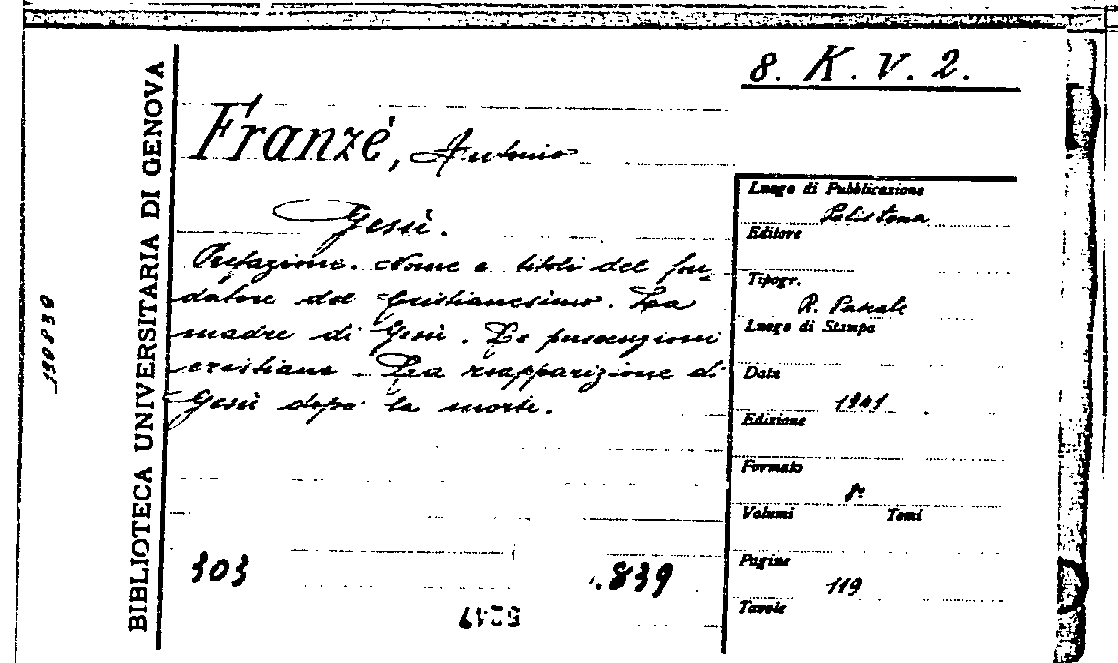 8. K. V. 2.
Franzè, Antonio
Gesù.
Prefazione. Nome e titoli del fon-
datore del Cristianesimo. La
madre di Gesù. Le persecuzioni
cristiane. La riapparizione di
Gesù dopo la morte.
303
.839
5247
BIBLIOTECA UNIVERSITARIA DI GENOVA
190839
Luogo di Pubblicazione
Polistena
Editore
Tipogr.
R. Pascale
Luogo di Stampa
Data
1941
Edizione
Formato
8°
Volumi Tomi
Pagine
119
Tavole